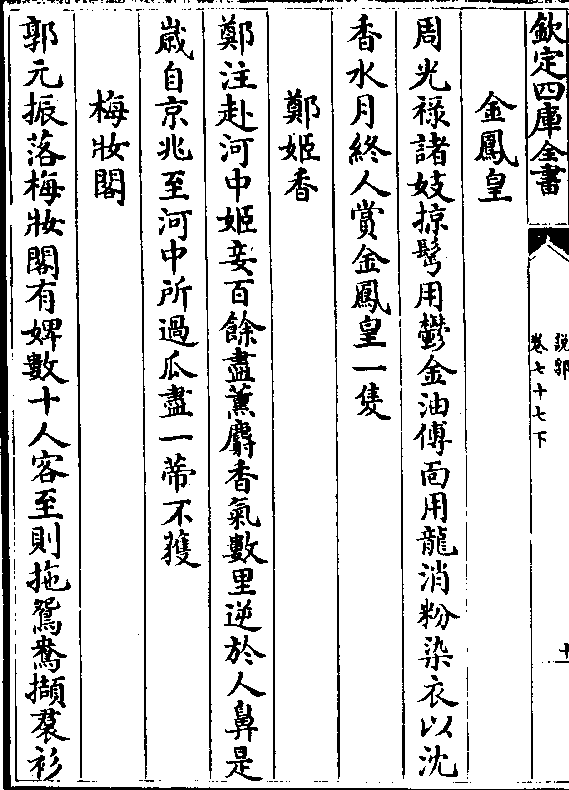 欽定四庫全書
説郛
卷七十七下
十
金鳳皇
周光禄諸妓掠鬢用鬱金油傅面用龍消粉染衣以沈
香水月終人賞金鳳皇一隻
鄭姬香
鄭注赴河中姬妾百餘盡薰麝香氣數里逆於人鼻是
嵗自京兆至河中所過瓜盡一蒂不獲
梅妝閣
郭元振落梅妝閣有婢數十人客至則拖鴛鴦擷裙衫